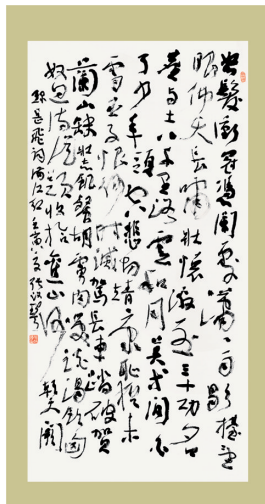 怒髮衝冠憑闌處瀟瀟雨歇抬望
眼仰天長嘯壯懷激烈三十功名
塵與土八千里路雲和月莫等閒白
了少年頭空悲切靖康恥猶未
雪臣子恨何時滅駕長車踏破賀
蘭山缺壯志飢餐胡虜肉笑談渴飲匈
奴血待從頭收拾舊山河朝天闕
岳飛詞滿江紅壬寅夏